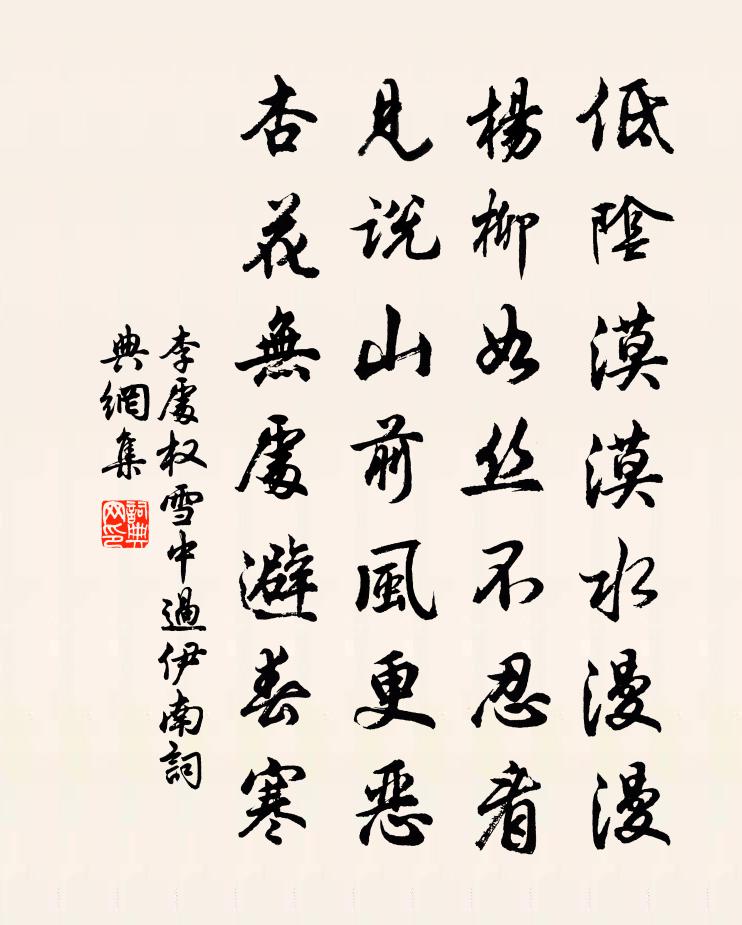 低陰漠漠水漫漫
楊柳如丝不忍看
見説山前風更惡
杏花無處避春寒
李處权雪中過伊南詞
典網集
詞典网印